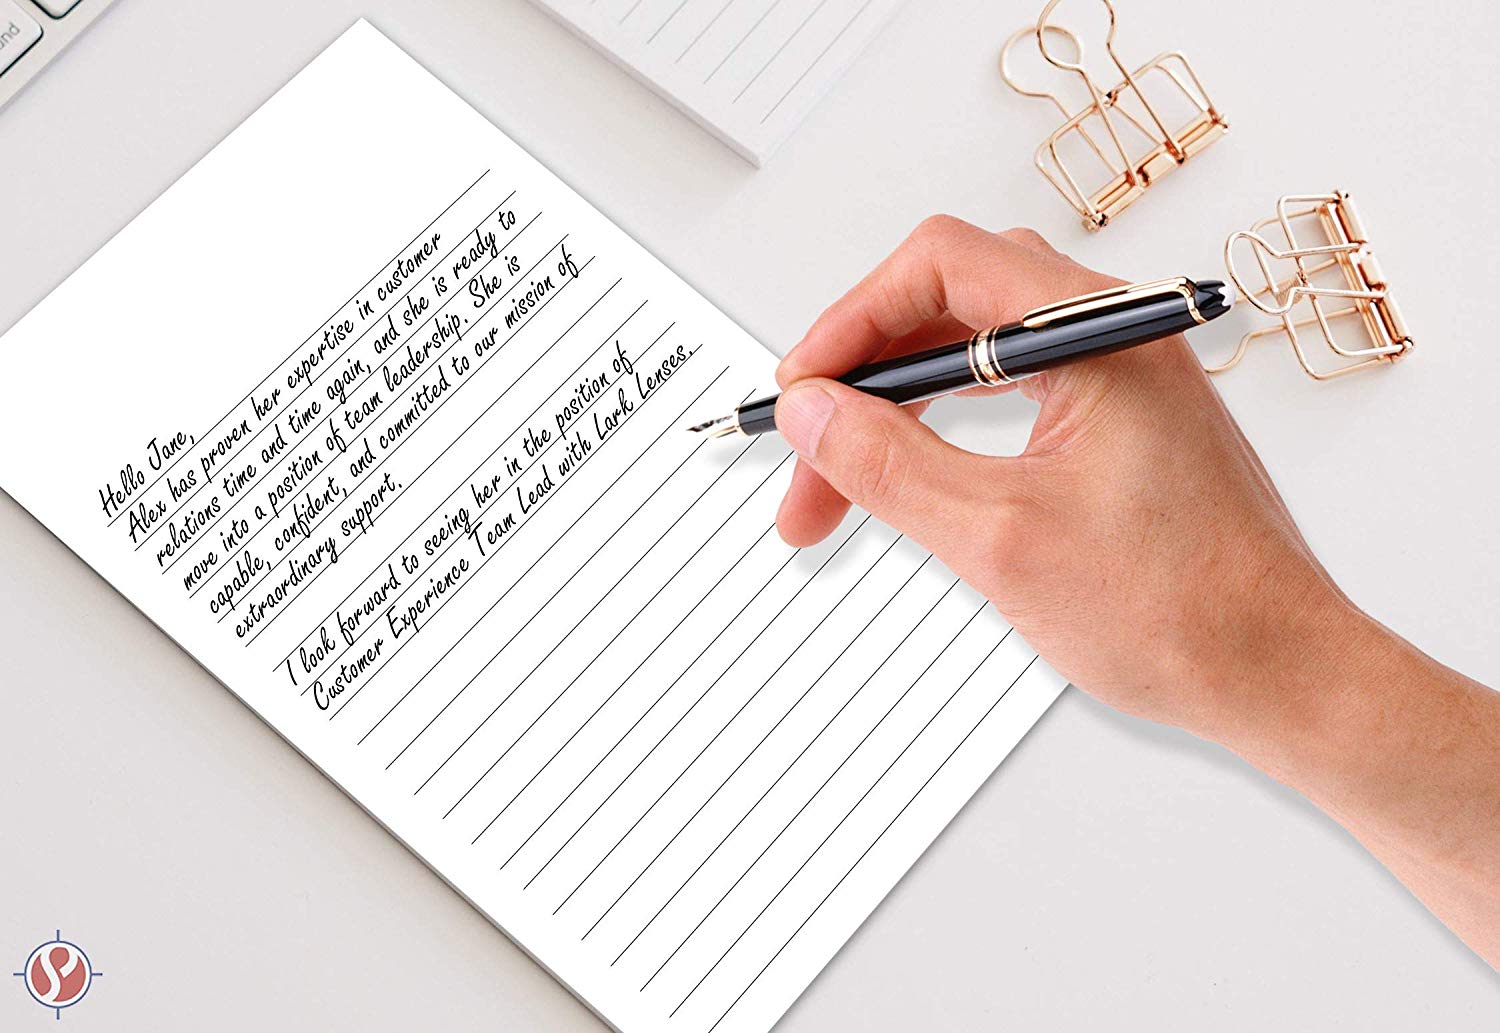 und
Hello Jane,
Alex has proven her expertise in customer
relations time and time again, and she is ready to
move into a position of team leadership. She is
capable, confident, and committed to our mission of
extraordinary support.
I look forward to seeing her in the position of
Customer Experience Team Lead with Lark Lenses.